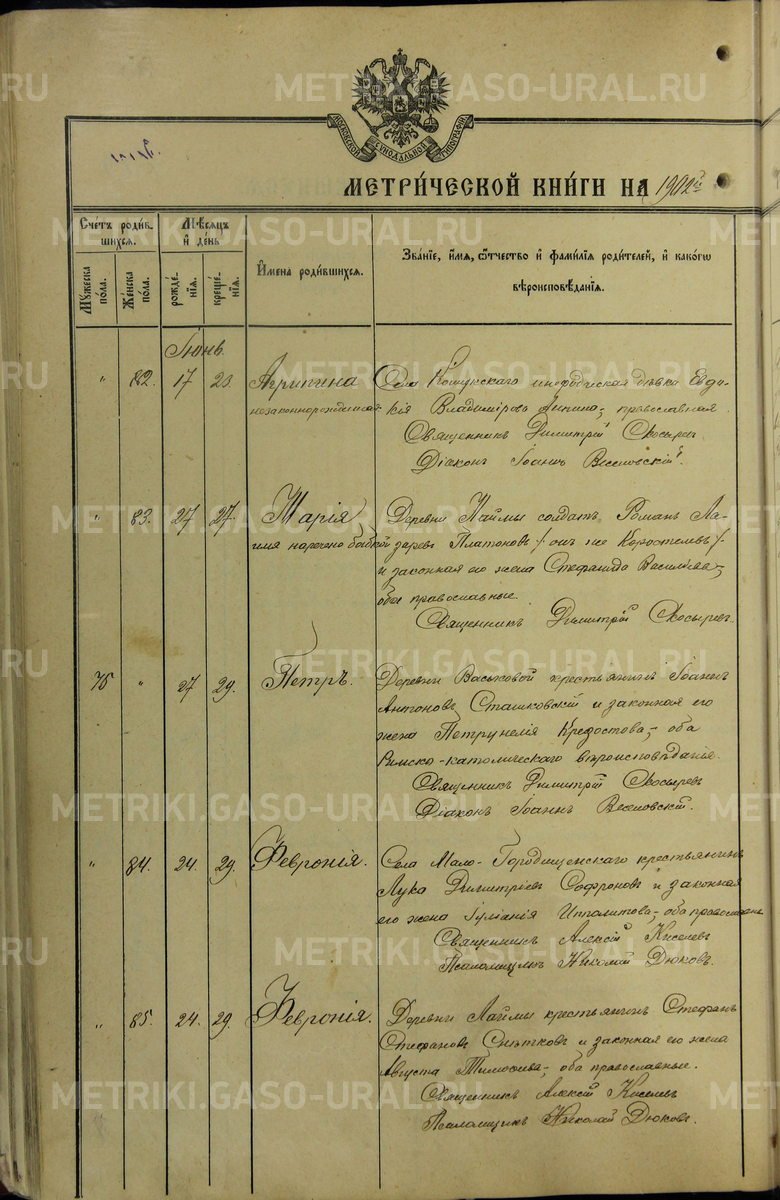 МОСКОВСКОЙ СѴНОДАЛЬНОЙ ТИПОГРАФІИ
МЕТРИ́ЧЕСКОЙ КНИ́ГИ НА 1902й
Сче́тъ роди́в-
шихся.
Мѣ́сяцъ
и҆ де́нь
Мꙋ́жеска по́ла.
Же́нска по́ла.
рожде́-
нїѧ.
креще́-
нїѧ.
И҆мена̀ роди́вшихся.
Зва́нїе, и҆́мѧ, ѻ҆́тчество и҆ фами́лїѧ роди́телей, и҆ како́гѡ
вѣроисповѣ́данїѧ.
Іюнь.
" 82. 17 23 Агрипина Села Кошукскаго дѣвка Евдо-
незаконнорожденная кія Владимірова православная.
Священникъ Димитрій
Діаконъ Іоаннъ Веселовскій.
" 83. 27 27. Марія Деревни Лаймы солдатъ Романъ Ла-
имя наречено бабкой заревъ Платоновъ /онъ же Коростелевъ/
и законная его жена Стефанида Васильева,
оба православные.
Священникъ Димитрій
75 " 27 29. Петръ. Деревни Васьковой крестьянинъ Іоаннъ
Антоновъ Сташковскій и законная его
жена Петрунелія оба
Римско-католическаго вѣроисповѣданія.
Священникъ Димитрій
Діаконъ Іоаннъ Веселовскій.
" 84. 24. 29. Февронія. Села Мало-Городищенскаго крестьянинъ
Лука Димитріевъ Софроновъ и законная
его жена Іуліанія Ипполитова, оба православные
Священникъ Алексій Киселевъ
Псаломщикъ Николай Дюковъ.
" 85. 24. 29. Февронія. Деревни Лаймы крестьянинъ Стефанъ
Стефановъ и законная его жена
Августа Тимофеева, оба православные.
Священникъ Алексій Киселевъ
Псаломщикъ Николай Дюковъ.
METRIKI.GASO-URAL.RU